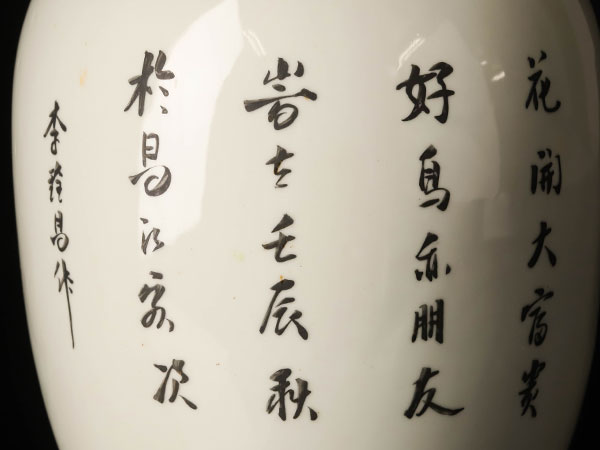 花開大富貴
好鳥亦朋友
時在壬辰秋
於昌江客次
李登昌作